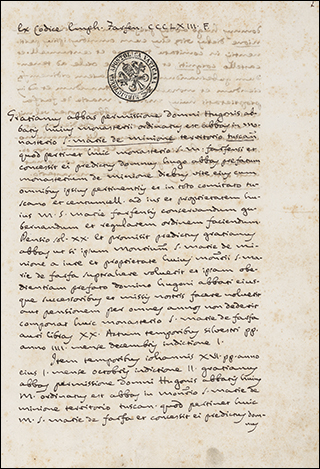 Ex Codice Emph. Farfen. CCCLXIII. F.
BIBLIOTECA APOSTOLICA VATICANA
Gratianus abbas permissione domni Hugonis ab-
batis huius monasterii ordinatus est abbas in mo-
nasterio S. marie de minione territorio tuscan.
quod pertinet huic monasterio S. M. farfensis et
concessit ei predictus domnus hugo abbas prefatum
monasterium de minione diebus vite eius cum
omnibus ipsius pertinentiis et in toto comitatu tu-
scano et centumcell. ad ius et proprietatem hu-
ius M. S. marie farfensis conservandum gu-
bernandum et regularem ordinem faciendum
Pensio sol. XX. et promisit predictus gratianus
abbas ut si ipsum S. marie de mi-
nione a iure et proprietate huius S. ma-
rie de farfa subtrahere voluerit vel ipsam obe-
dientiam prefato domino hugoni abbati eius-
que successoribus et missis nostris facere noluerit
aut pensionem per omnes annos non dederit
componat huic monasterio S. marie de farfa
auri libras XX. Actum temporibus silvestri pp.
anno IIII. mense decembris indictione I.
Item temporibus iohannis XVII. pp. anno
eius I. mense octobris indictione II. gratianus
abbas permissione domni Hugonis abbatis huius
M. ordinatus est abbas in S. marie de
minione territorio tuscan. quod pertinet huic
M. S. marie de farfa et concessit ei predictus dom-
nus